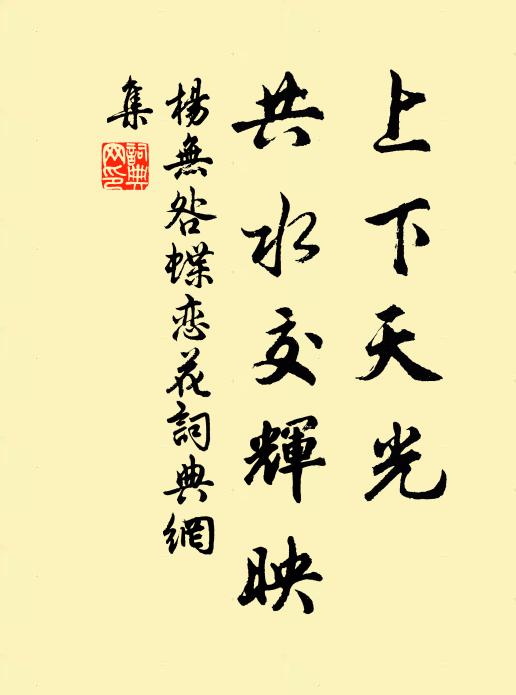 上下天光
共水交輝映
楊無咎蝶恋花詞典網
集
詞典
网印